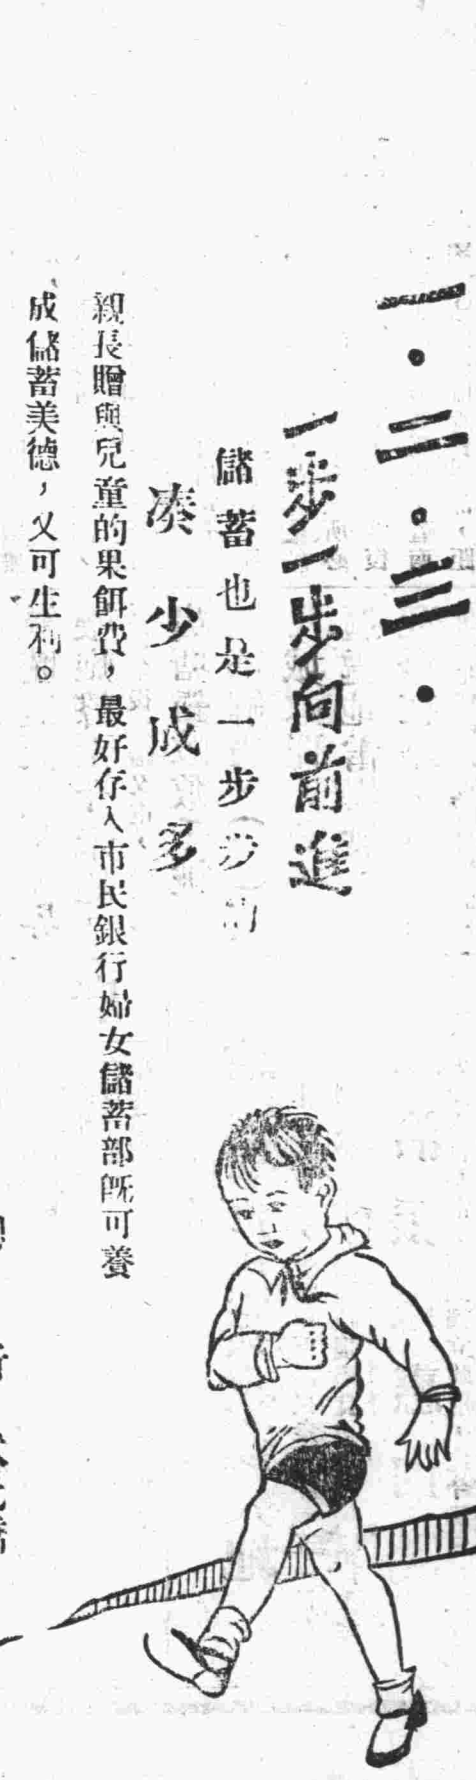 一．二．三．
一步一步向前進
儲蓄也是一步步的
凑少成多
親長贈與兒童的果餌費，最好存入市民銀行婦女儲蓄部旣可養
成儲蓄美德，又可生利。